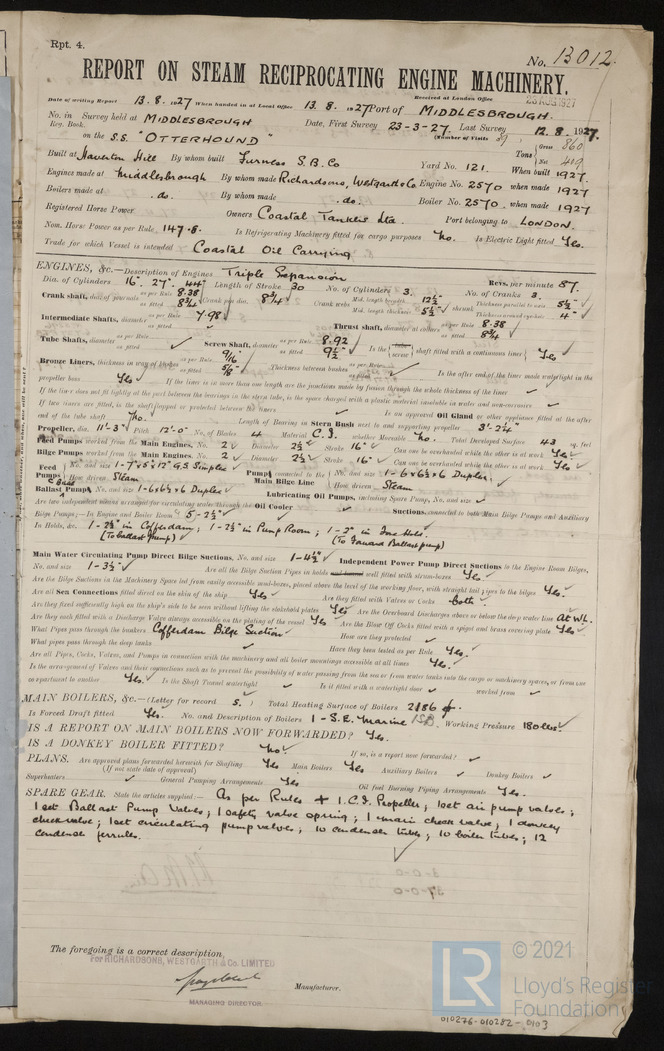 Rpt. 4.
No. 13012.
REPORT ON STEAM RECIPROCATING ENGINE MACHINERY.
Received at London Office
Date of writing Report 13.8.1927 When handed in at Local Office 13.8.1927 Port of MIDDLESBROUGH.
No. in Reg. Book. Survey held at MIDDLESBROUGH Date, First Survey 23-3-27. Last Survey 12.8.1927.
(Number of Visits
on the S.S. "OTTERHOUND" Tons Gross 860 Net 419
Built at Haverton Hill By whom built Furness S.B. Co Yard No. 121. When built 1927.
Engines made at Middlesbrough By whom made Richardsons, Westgarth & Co Engine No. 2570 when made 1927
Boilers made at do. By whom made do. Boiler No. 2570 when made 1927
Registered Horse Power Owners Coastal Tankers Ltd. Port belonging to LONDON.
Nom. Horse Power as per Rule 147.8. Is Refrigerating Machinery fitted for cargo purposes No. Is Electric Light fitted Yes.
Trade for which Vessel is intended Coastal Oil Carrying
ENGINES, &c.—Description of Engines Triple Expansion Revs. per minute 87.
Dia. of Cylinders 16" 27" 44" Length of Stroke 30 No. of Cylinders 3. No. of Cranks 3.
Crank shaft, dia. of journals as per Rule 8.38 as fitted 8¾ Crank pin dia. 8¾ Crank webs Mid. length breadth 12½ Mid. length thickness 5½ shrunk Thickness parallel to axis 5½ Thickness around eyehole 4"
Intermediate Shafts, diameter as per Rule 7.98 as fitted Thrust shaft, diameter at collars as per Rule 8.38 as fitted 8¾
Tube Shafts, diameter as per Rule as fitted Screw Shaft, diameter as per Rule 8.92 as fitted 9½ Is the screw shaft fitted with a continuous liner Yes
Bronze Liners, thickness in way of bushes as per Rule 9/16 as fitted 5/8 Thickness between bushes as per Rule as fitted Is the after end of the liner made watertight in the
propeller boss Yes If the liner is in more than one length are the junctions made by fusion through the whole thickness of the liner
If the liner does not fit tightly at the part between the bearings in the stern tube, is the space charged with a plastic material insoluble in water and non-corrosive
If two liners are fitted, is the shaft lapped or protected between the liners Is an approved Oil Gland or other appliance fitted at the after
end of the tube shaft No Length of Bearing in Stern Bush next to and supporting propeller 3'-2¼"
Propeller, dia. 11'-3" Pitch 12'-0" No. of Blades 4 Material C.I. whether Moveable No. Total Developed Surface 43 sq. feet
Feed Pumps worked from the Main Engines, No. 2 Diameter 2½ Stroke 16" Can one be overhauled while the other is at work Yes
Bilge Pumps worked from the Main Engines, No. 2 Diameter 2½ Stroke 16" Can one be overhauled while the other is at work Yes
Feed Pumps No. and size 1-7"x5"x12" G.S. Simplex How driven Steam Pumps connected to the Main Bilge Line No. and size 1-6x6½x6 Duplex How driven Steam.
Ballast Pumps, No. and size 1-6x6½x6 Duplex Lubricating Oil Pumps, including Spare Pump, No. and size
Are two independent means arranged for circulating water through the Oil Cooler Suctions, connected to both Main Bilge Pumps and Auxiliary
Bilge Pumps;—In Engine and Boiler Room 5-2½"
In Holds, &c. 1-2½" in Cofferdam; 1-2½" in Pump Room; 1-2" in Fore Hold.
(To Ballast Pump) (To Forward Ballast pump)
Main Water Circulating Pump Direct Bilge Suctions, No. and size 1-4½" Independent Power Pump Direct Suctions to the Engine Room Bilges,
No. and size 1-3½" Are all the Bilge Suction Pipes in holds well fitted with strum-boxes Yes
Are the Bilge Suctions in the Machinery Space led from easily accessible mud-boxes, placed above the level of the working floor, with straight tail pipes to the bilges Yes.
Are all Sea Connections fitted direct on the skin of the ship Yes Are they fitted with Valves or Cocks Both
Are they fixed sufficiently high on the ship's side to be seen without lifting the stokehold plates Yes Are the Overboard Discharges above or below the deep water line At WL.
Are they each fitted with a Discharge Valve always accessible on the plating of the vessel Yes Are the Blow Off Cocks fitted with a spigot and brass covering plate Yes
What Pipes pass through the bunkers Cofferdam Bilge Suction How are they protected
What pipes pass through the deep tanks Have they been tested as per Rule Yes.
Are all Pipes, Cocks, Valves, and Pumps in connection with the machinery and all boiler mountings accessible at all times Yes.
Is the arrangement of Valves and their connections such as to prevent the possibility of water passing from the sea or from water tanks into the cargo or machinery spaces, or from one
compartment to another Yes. Is the Shaft Tunnel watertight Is it fitted with a watertight door worked from
MAIN BOILERS, &c.—(Letter for record S.) Total Heating Surface of Boilers 2186
Is Forced Draft fitted Yes. No. and Description of Boilers 1-S.E. Marine 1SB. Working Pressure 180 lbs.
IS A REPORT ON MAIN BOILERS NOW FORWARDED? Yes.
IS A DONKEY BOILER FITTED? No. If so, is a report now forwarded?
PLANS. Are approved plans forwarded herewith for Shafting Yes Main Boilers Yes Auxiliary Boilers Donkey Boilers
(If not state date of approval)
Superheaters General Pumping Arrangements Yes Oil fuel Burning Piping Arrangements Yes.
SPARE GEAR. State the articles supplied:— As per Rules + 1 C.I. Propeller; 1 set air pump valves;
1 set Ballast Pump Valves; 1 safety valve spring; 1 main check valve; 1 donkey
check valve; 1 set circulating pump valves; 10 condenser tubes; 10 boiler tubes; 12
condenser ferrules.
The foregoing is a correct description,
For RICHARDSONS, WESTGARTH & Co. LIMITED
Manufacturer.
MANAGING DIRECTOR.
LR © 2021
Lloyd's Register
Foundation
010276-010282-0103